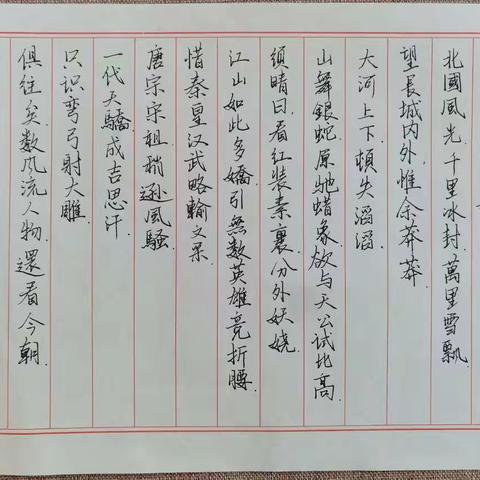 北國風光.千里冰封.萬里雪飄.
望長城内外,惟余莽莽.
大河上下.頓失滔滔.
山舞銀蛇.原馳蜡象.欲与天公試比高.
須晴日.看红装素裹.分外妖娆.
江山如此多嬌.引無數英雄竞折腰.
惜秦皇汉武.略輸文采.
唐宗宋祖.稍逊風騷.
一代天驕.成吉思汗.
只识弯弓射大雕.
俱往矣.数风流人物.還看今朝.